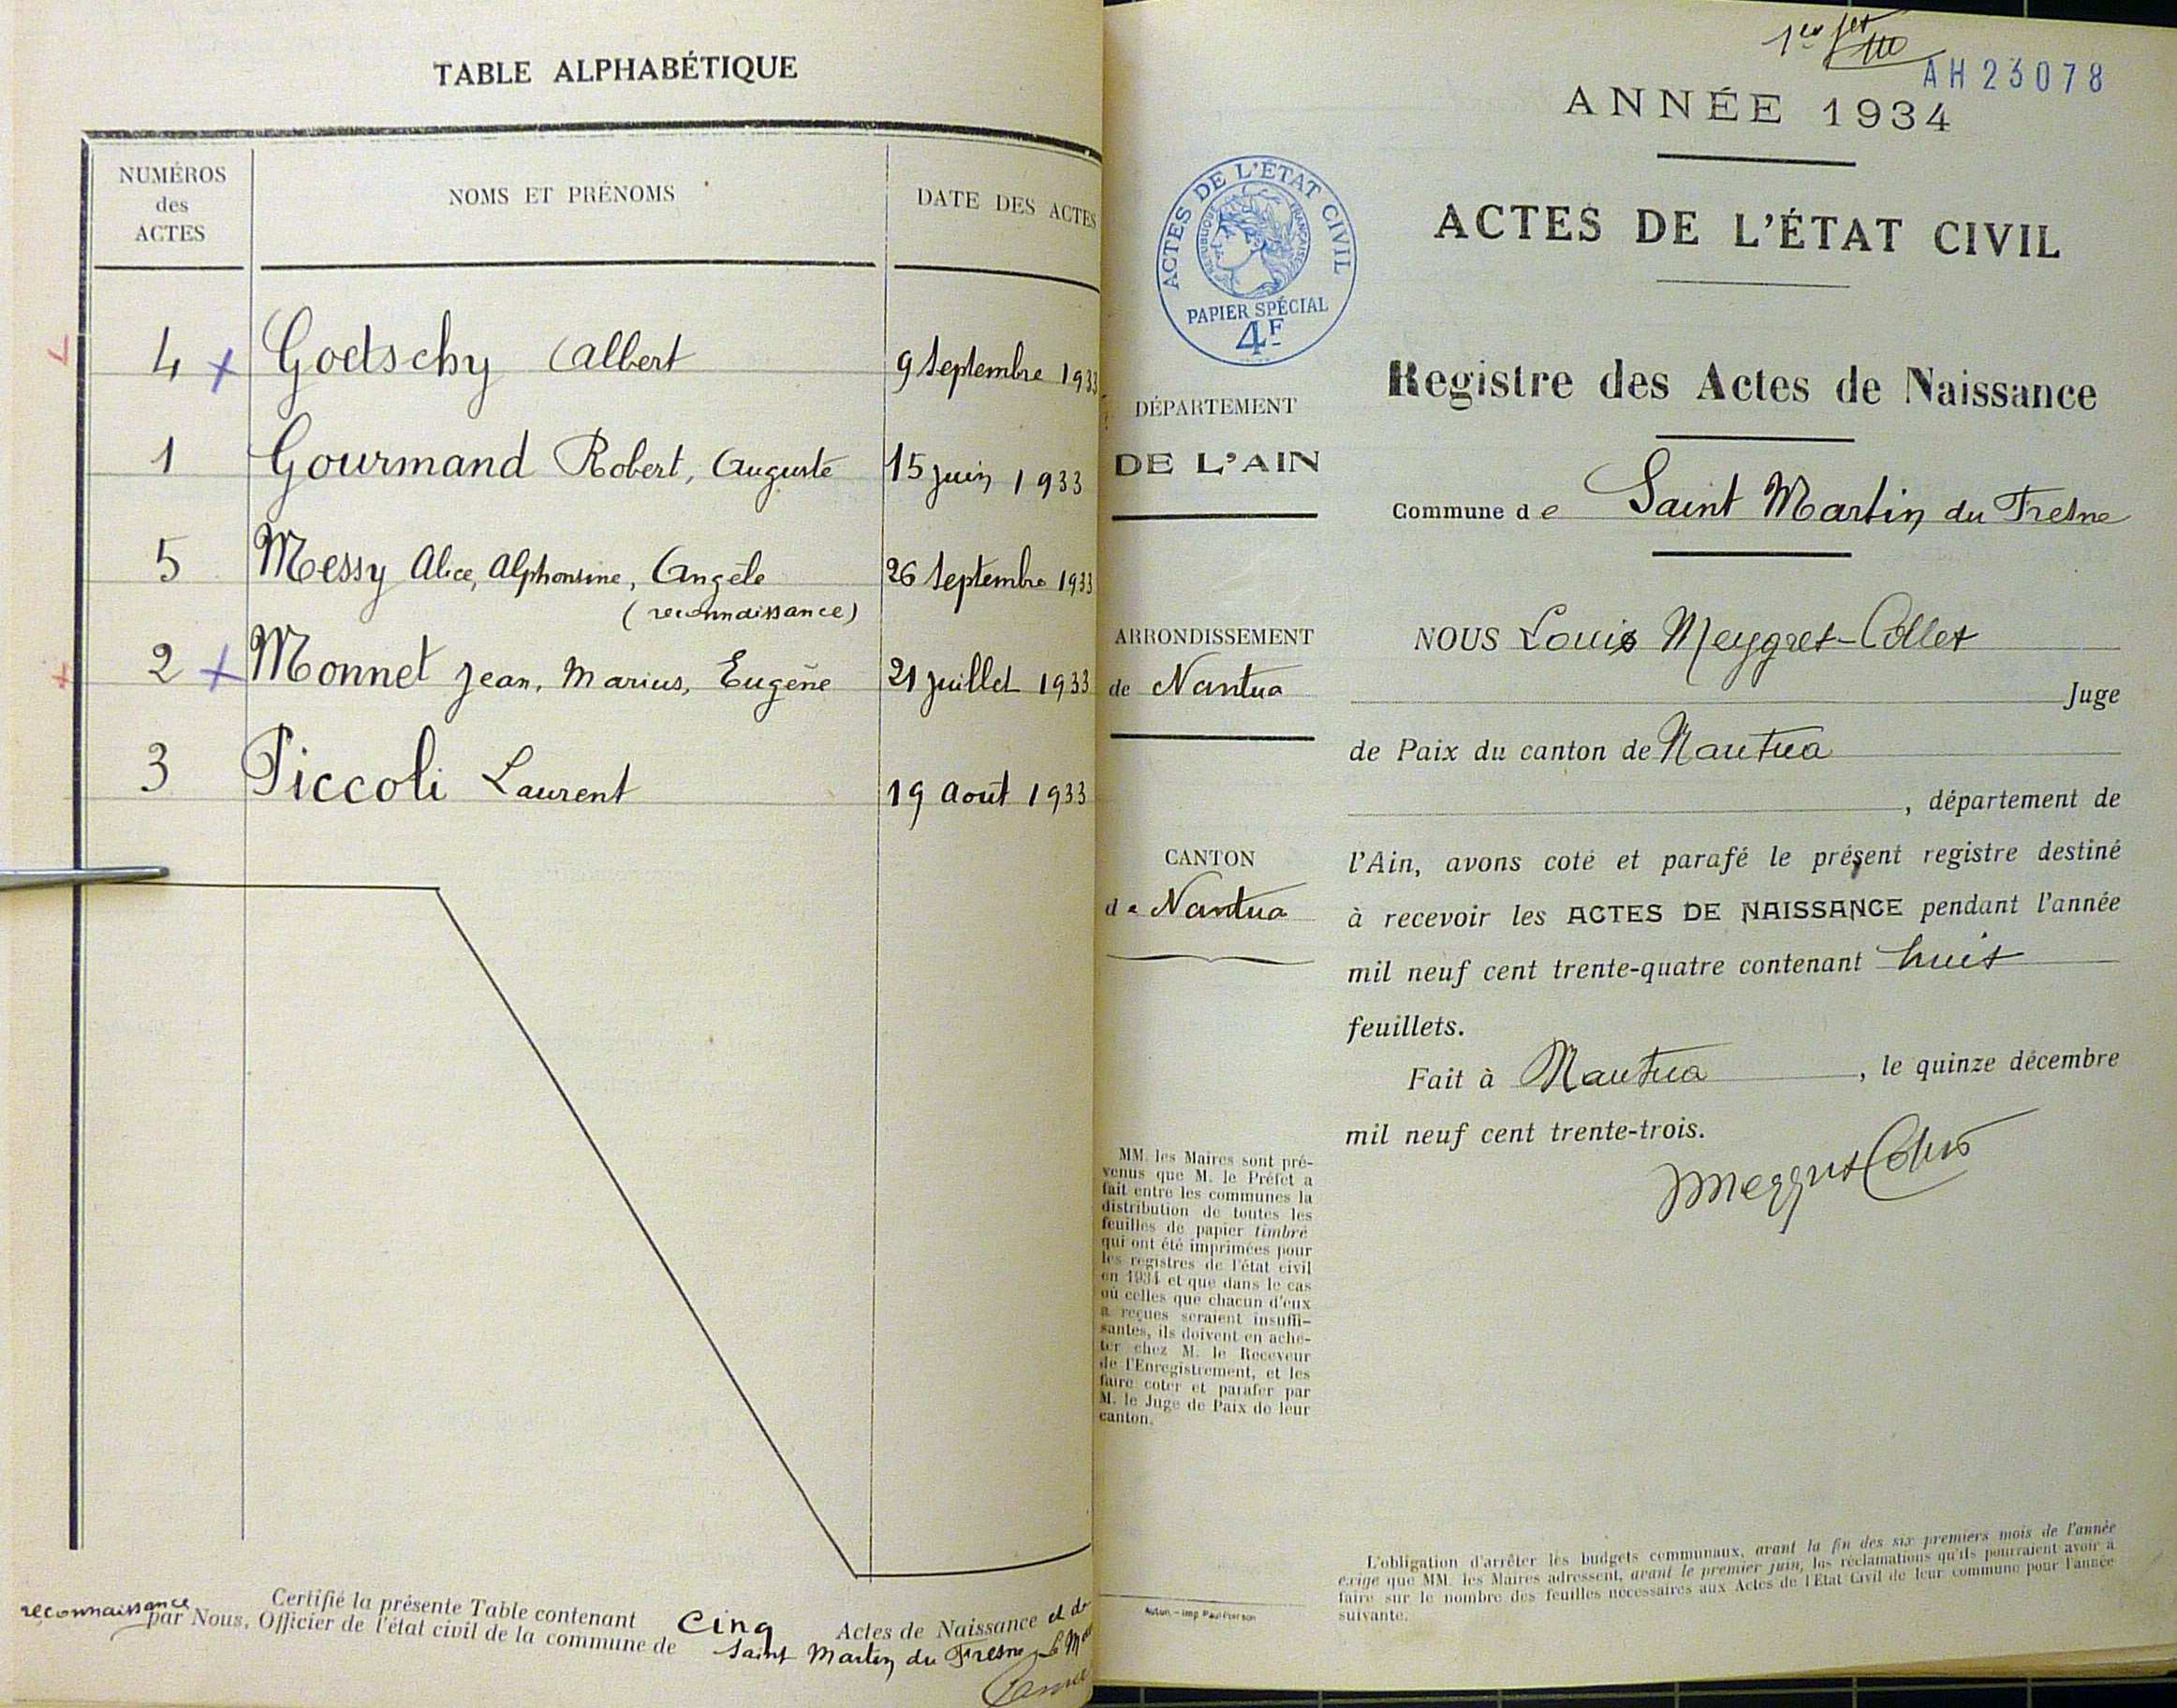 TABLE ALPHABÉTIQUE
NUMÉROS
des
ACTES
NOMS ET PRÉNOMS
DATE DES ACTES
4 Goetschy Albert 9 Septembre 1933
1 Gourmand Robert, Auguste 15 juin 1933
5 Messy Alice, Alphonsine, Angèle 26 Septembre 1933
(reconnaissance)
2 Monnet Jean, Marius, Eugène 21 juillet 1933
3 Piccoli Laurent 19 Août 1933
Certifié la présente Table contenant Cinq Actes de Naissance et de
reconnaissance
par Nous, Officier de l'état civil de la commune de Saint Martin du Fresne, Le
1er jet
AH 23078
ANNÉE 1934
ACTES DE L'ÉTAT CIVIL
ACTES DE L'ÉTAT CIVIL
RÉPUBLIQUE FRANÇAISE
PAPIER SPÉCIAL
4F
Registre des Actes de Naissance
Commune de Saint Martin du Fresne
DÉPARTEMENT
DE L'AIN
ARRONDISSEMENT
de Nantua
CANTON
de Nantua
MM. les Maires sont pré-
venus que M. le Préfet a
fait entre les communes la
distribution de toutes les
feuilles de papier timbré
qui ont été imprimées pour
les registres de l'état civil
en 1934 et que dans le cas
où celles que chacun d'eux
a reçues seraient insuffi-
santes, ils doivent en ache-
ter chez M. le Receveur
de l'Enregistrement, et les
faire coter et parafer par
M. le Juge de Paix de leur
canton.
NOUS Louis Meygret-Collet
Juge
de Paix du canton de Nantua
, département de
l'Ain, avons coté et parafé le présent registre destiné
à recevoir les ACTES DE NAISSANCE pendant l'année
mil neuf cent trente-quatre contenant huit
feuillets.
Fait à Nantua, le quinze décembre
mil neuf cent trente-trois.
L'obligation d'arrêter les budgets communaux, avant la fin des six premiers mois de l'année
exige que MM. les Maires adressent, avant le premier juin, les réclamations qu'ils pourraient avoir à
faire sur le nombre des feuilles nécessaires aux Actes de l'Etat Civil de leur commune pour l'année
suivante.